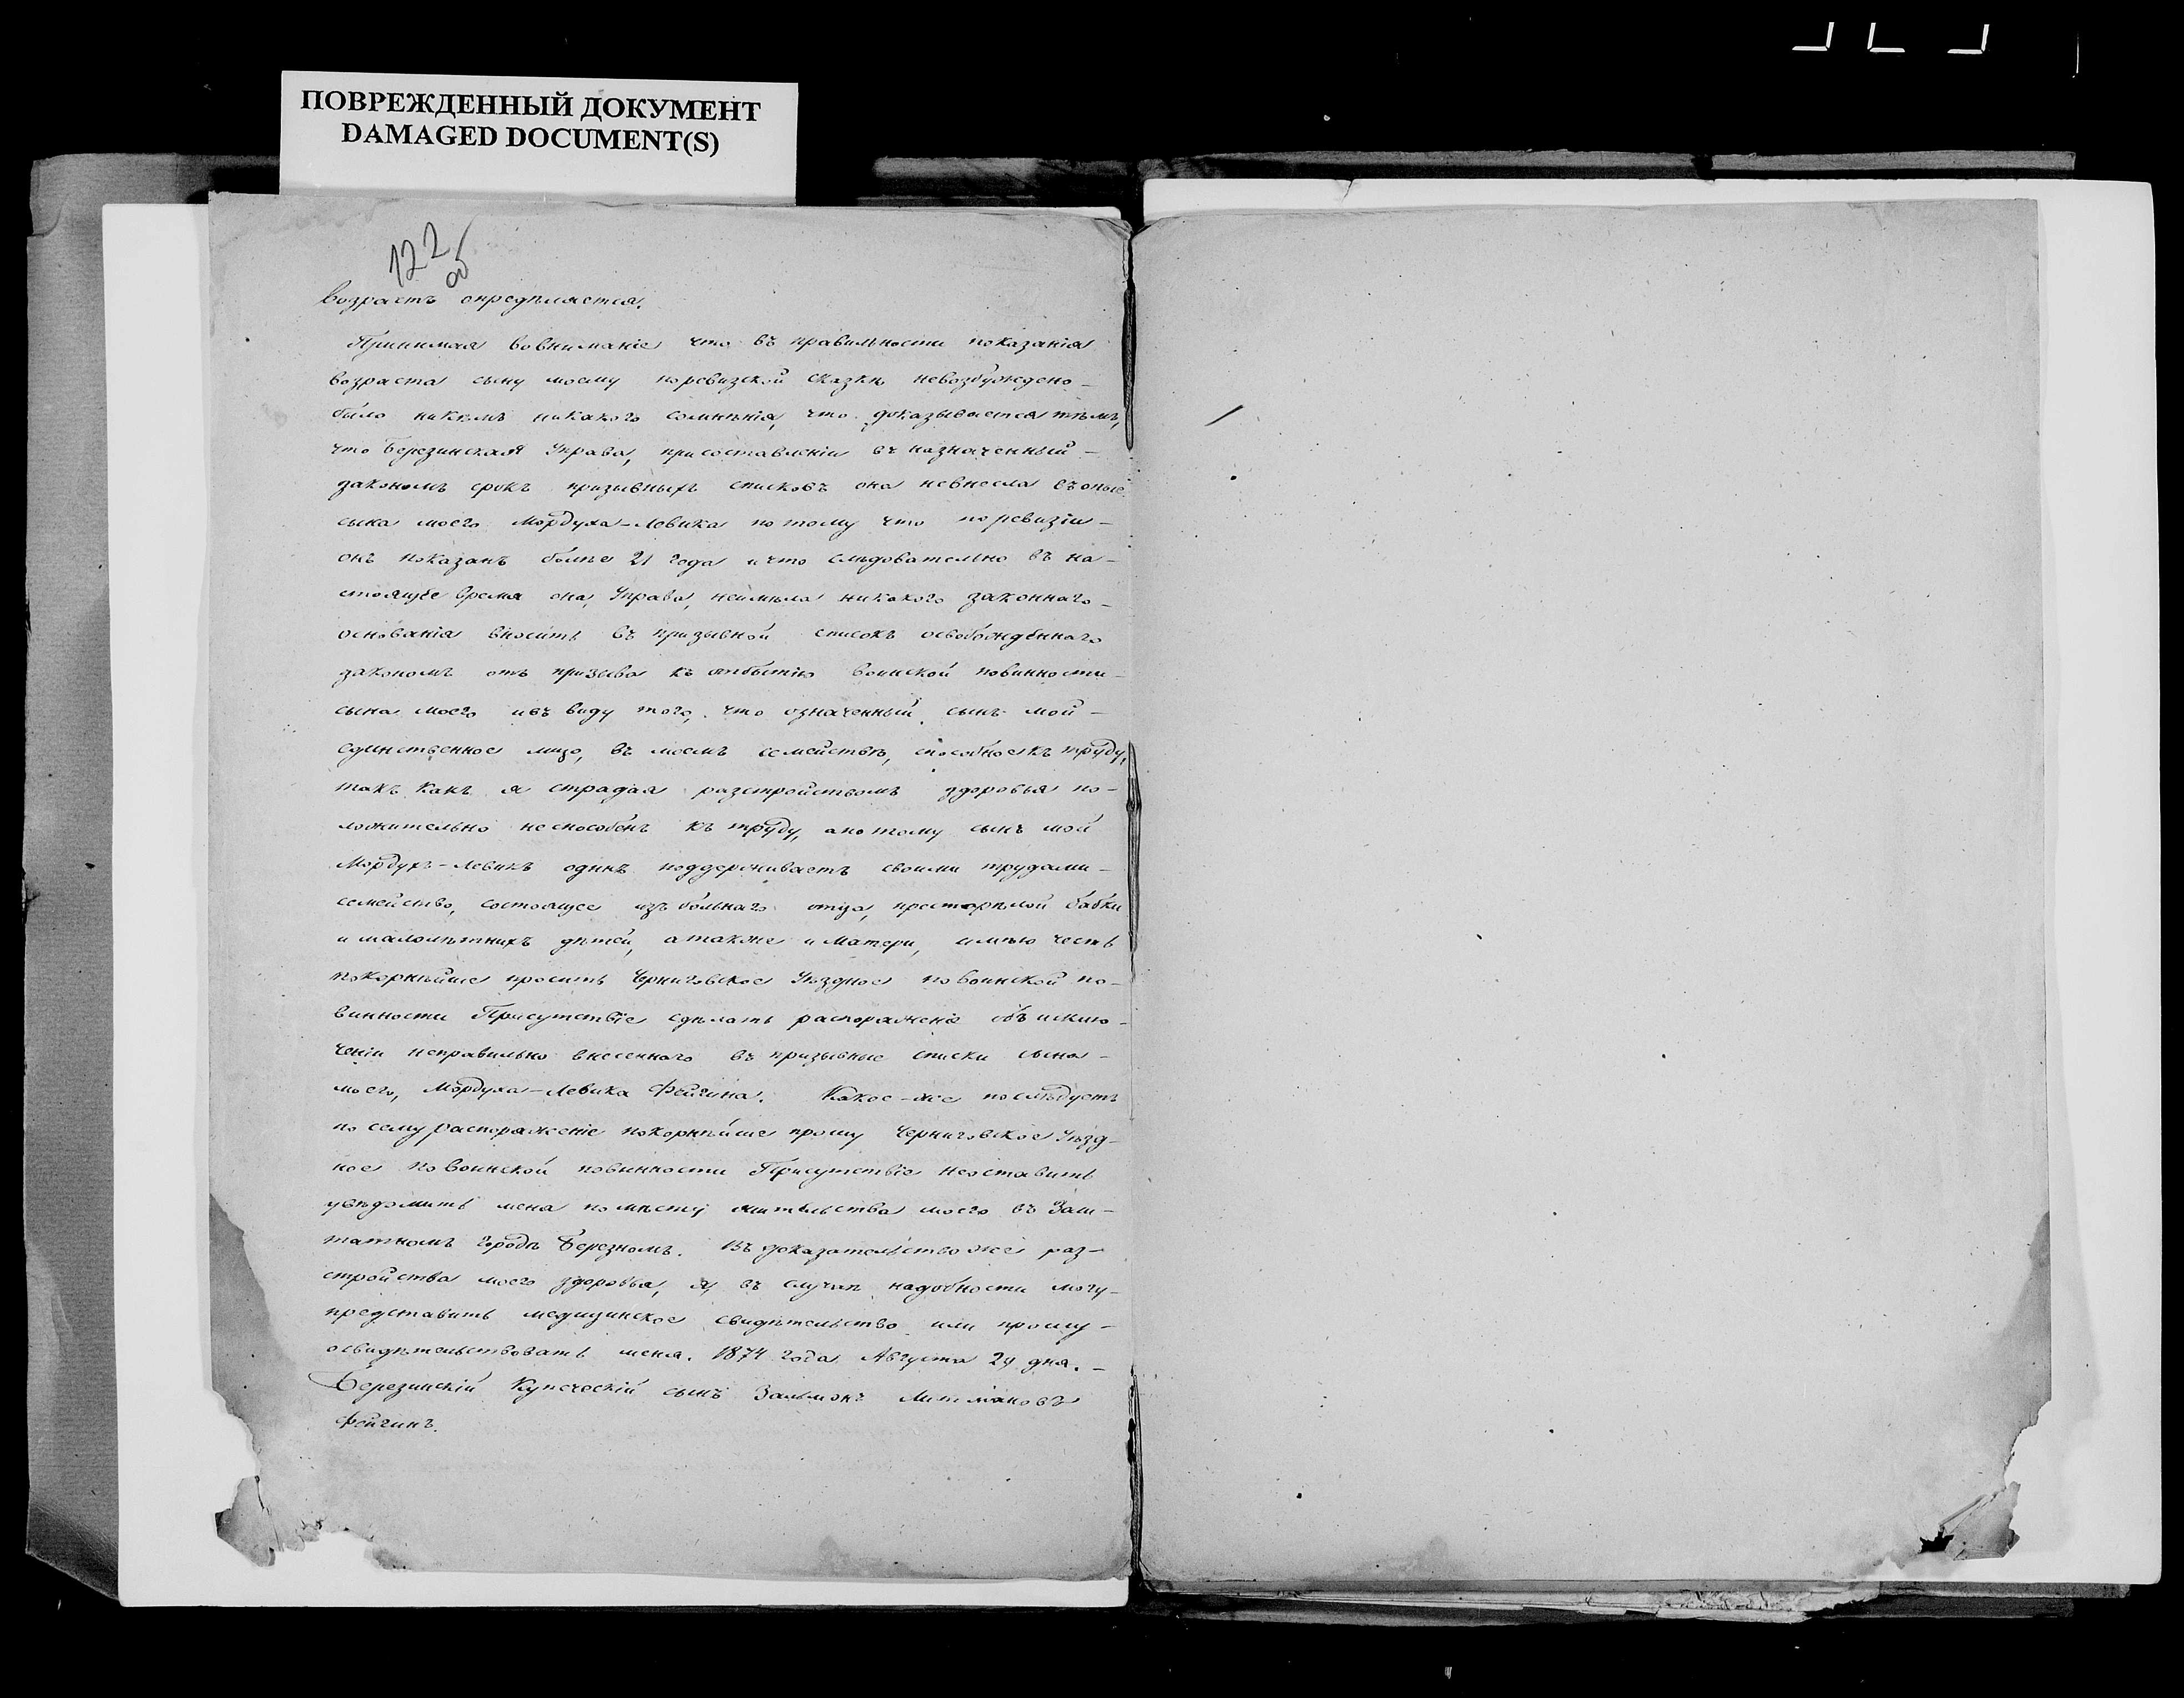 ПОВРЕЖДЕННЫЙ ДОКУМЕНТ
DAMAGED DOCUMENT(S)
122
об
возрастъ опредѣляется.
Принимая вовниманіе что въ правильности показанія
возраста сыну моему поревизской сказкѣ невозбуждено –
было никѣмъ никакого сомнѣнія, что доказывается тѣмъ,
что Березинская Управа, присоставленіи въ назначенный –
закономъ срокъ призывныхъ списковъ она невнесла въ оные
сына моего Мордуха-Левика потому что поревизіи –
онъ показанъ болѣе 21 года ичто слѣдовательно въ на-
стоящее время она, Управа, неимѣла никакого законнаго –
основанія вносить въ призывной списокъ освобожденнаго
закономъ отъ призыва къ отбытію воинской повинности –
сына моего ивъ виду того, что означенный сынъ мой –
единственное лицо, въ моемъ семействѣ, способное къ труду,
такъ какъ я страдая разстройствомъ здоровья по-
ложительно неспособенъ къ труду, апотому сынъ мой
Мордухъ-Левикъ одинъ поддерживаетъ своими трудами –
семейство, состоящее изъ больнаго отца, престарѣлой бабки
и малолѣтнихъ дѣтей, атакже и матери, имѣю честь
покорнѣйше просить Черниговское Уѣздное повоинской по-
винности Присутствіе сдѣлать распоряженіе объ исклю-
ченіи неправильно внесеннаго въ призывные списки сына –
моего, Мордуха-Левика Фейгина. Какое-же послѣдуетъ
по сему распоряженіе покорнѣйше прошу Черниговское Уѣзд-
ное повоинской повинности Присутствіе неоставить
увѣдомить меня помѣсту жительства моего въ Заш-
татномъ городѣ Березномъ. Въ доказательство же раз-
стройства моего здоровья, я, въ случаѣ надобности могу –
представить медицинское свидѣтельство или прошу –
освидѣтельствовать меня. 1874 года Августа 29 дня. –
Березинскій Купеческій сынъ Зальмонъ Литмановъ
Фейгинъ.